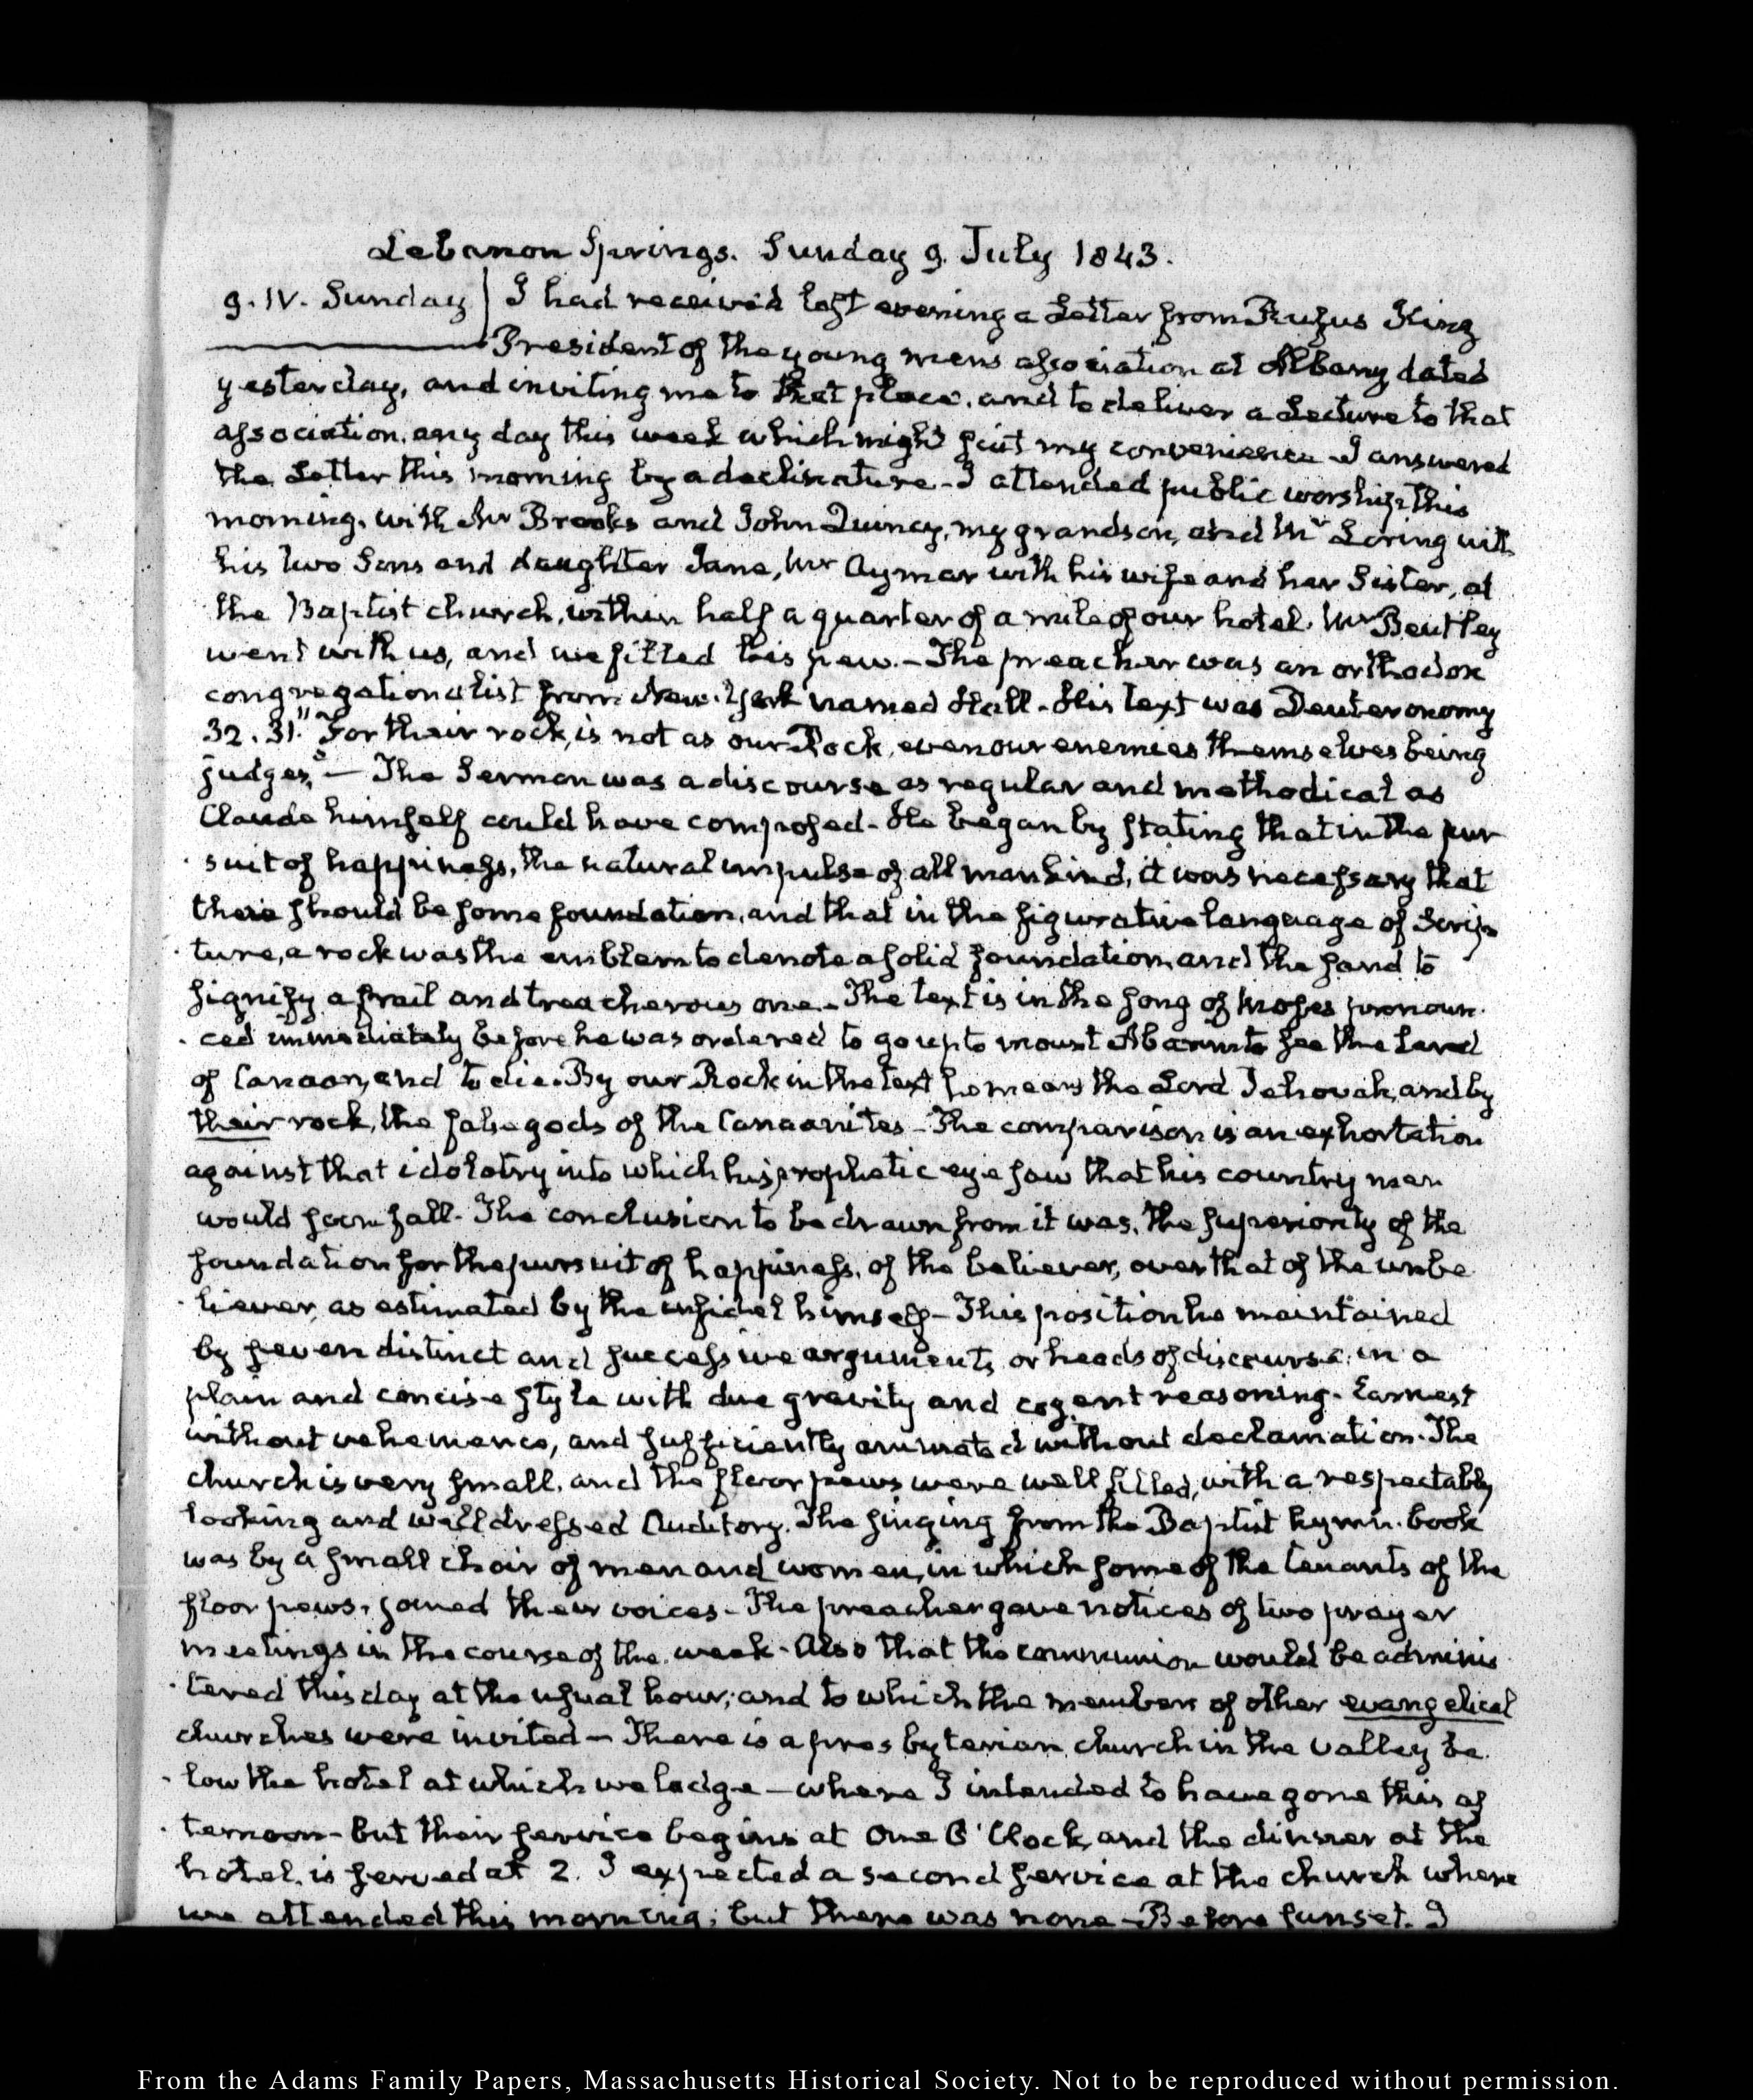 Lebanon Springs. Sunday 9. July 1843.
9. IV. Sunday I had received last evening a Letter from Rufus King
President of the young mens association at Albany dated
yesterday, and inviting me to that place, and to deliver a Lecture to that
association, any day this week which might suit my convenience. I answered
the Letter this morning by a declinature - I attended public worship this
morning, with Mr Brooks and John Quincy, my grandson, and Mr Loring with
his two Sons and daughter Jane, Mr Aymar with his wife and her Sister, at
the Baptist church, within half a quarter of a mile of our hotel. Mr Bentley
went with us, and we filled his pew. - The preacher was an orthodox
congregationalist from New-York named Hall - His text was Deuteronomy
32. 31. "For their rock, is not as our Rock, even our enemies themselves being
judges" - The Sermon was a discourse as regular and methodical as
Claude himself could have composed - He began by stating that in the pur
suit of happiness, the natural impulse of all mankind, it was necessary that
there should be some foundation, and that in the figurative language of Scrip
ture, a rock was the emblem to denote a solid foundation, and the sand to
signify a frail and treacherous one - The text is in the song of Moses pronoun
ced immediately before he was ordered to go up to mount Abarim to see the Land
of Canaan, and to die. By our Rock in the text he means the Lord Jehovah, and by
their rock, the false gods of the Canaanites - The comparison is an exhortation
against that idolatry into which his prophetic eye saw that his country men
would soon fall - The conclusion to be drawn from it was, the superiority of the
foundation for the pursuit of happiness, of the believer, over that of the unbe
liever, as estimated by the infidel himself - This position he maintained
by seven distinct and successive arguments, or heads of discourse, in a
plain and concise style with due gravity and cogent reasoning. Earnest
without vehemence, and sufficiently animated without declamation. The
church is very small, and the floor pews were well filled, with a respectably
looking and well dressed Auditory. The singing from the Baptist hymn-book
was by a small choir of men and women, in which some of the tenants of the
floor pews, joined their voices - The preacher gave notices of two prayer
meetings in the course of the week - Also that the communion would be adminis
tered this day at the usual hour; and to which the members of other evangelical
churches were invited - There is a presbyterian church in the valley be
low the hotel at which we lodge - where I intended to have gone this af
ternoon - but their service begins at One O'Clock, and the dinner at the
hotel, is served at 2. I expected a second service at the church where
we attended this morning; but there was none - Before sunset. I
From the Adams Family Papers, Massachusetts Historical Society. Not to be reproduced without permission.